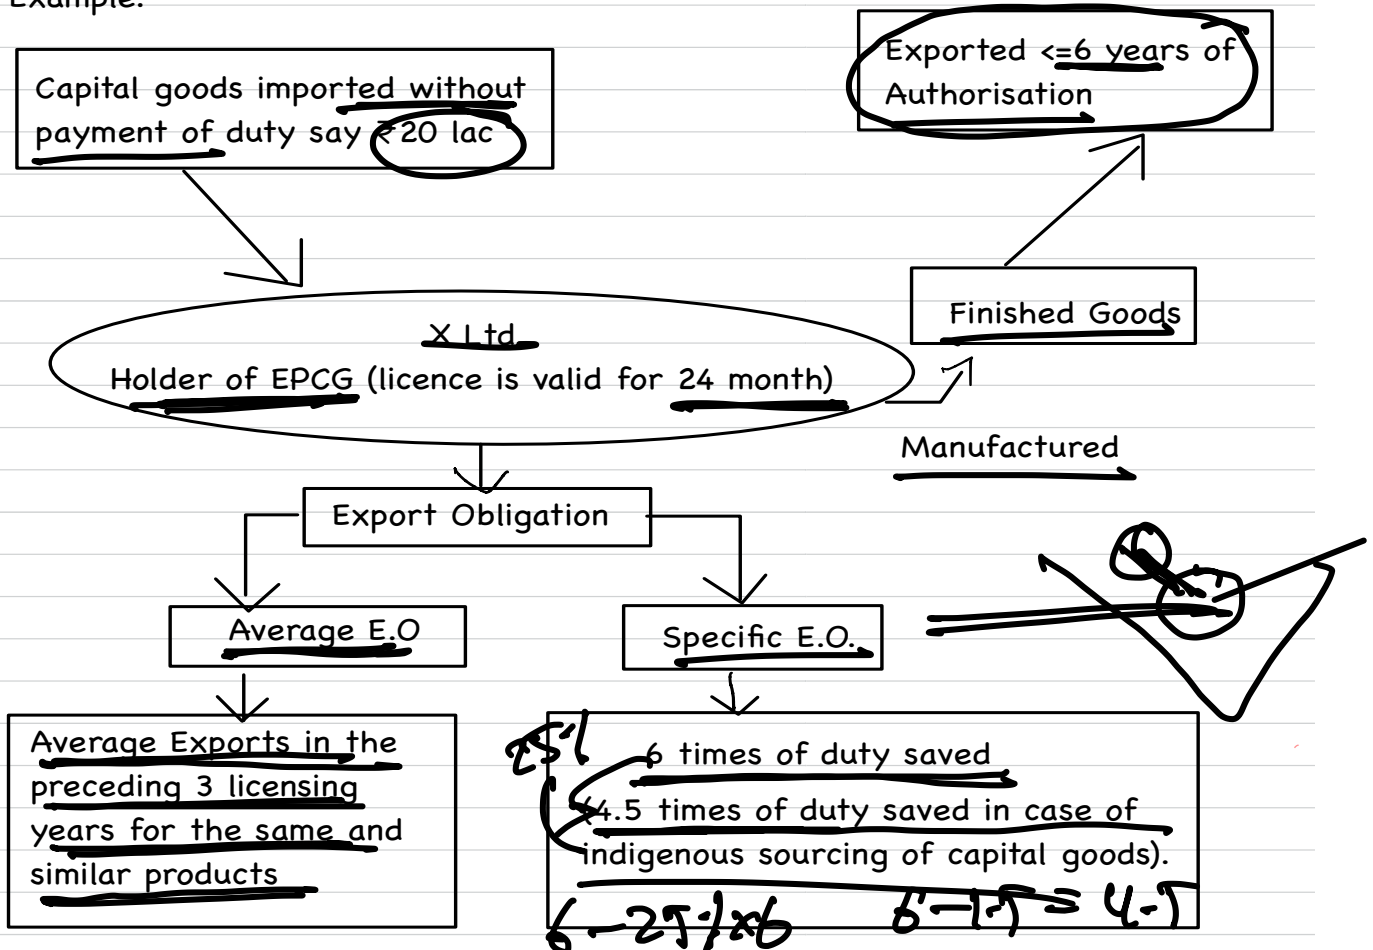 Example:
Exported <=6 years of
Authorisation
Capital goods imported without
payment of duty say ₹20 lac
Finished Goods
X Ltd.
Holder of EPCG (licence is valid for 24 month)
Manufactured
Export Obligation
Average E.O
Specific E.O.
Average Exports in the
preceding 3 licensing
years for the same and
similar products
25%
6 times of duty saved
(4.5 times of duty saved in case of
indigenous sourcing of capital goods).
6-25%x6
6-1.5 = 4.5